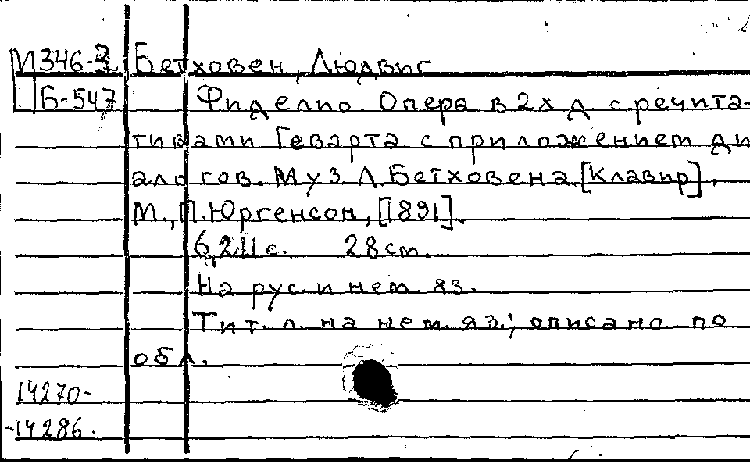 М346-3 Бетховен, Людвиг
Б-547 Фиделио. Опера в 2х д. с речита-
тивами Геварта с приложением ди
алогов. Муз. Л. Бетховена. [Клавир].
М., П. Юргенсон, [1891].
6,211с. 28см.
На рус. и нем. яз.
Тит. л. на нем. яз.; описано по
обл.
14270-
-14286.